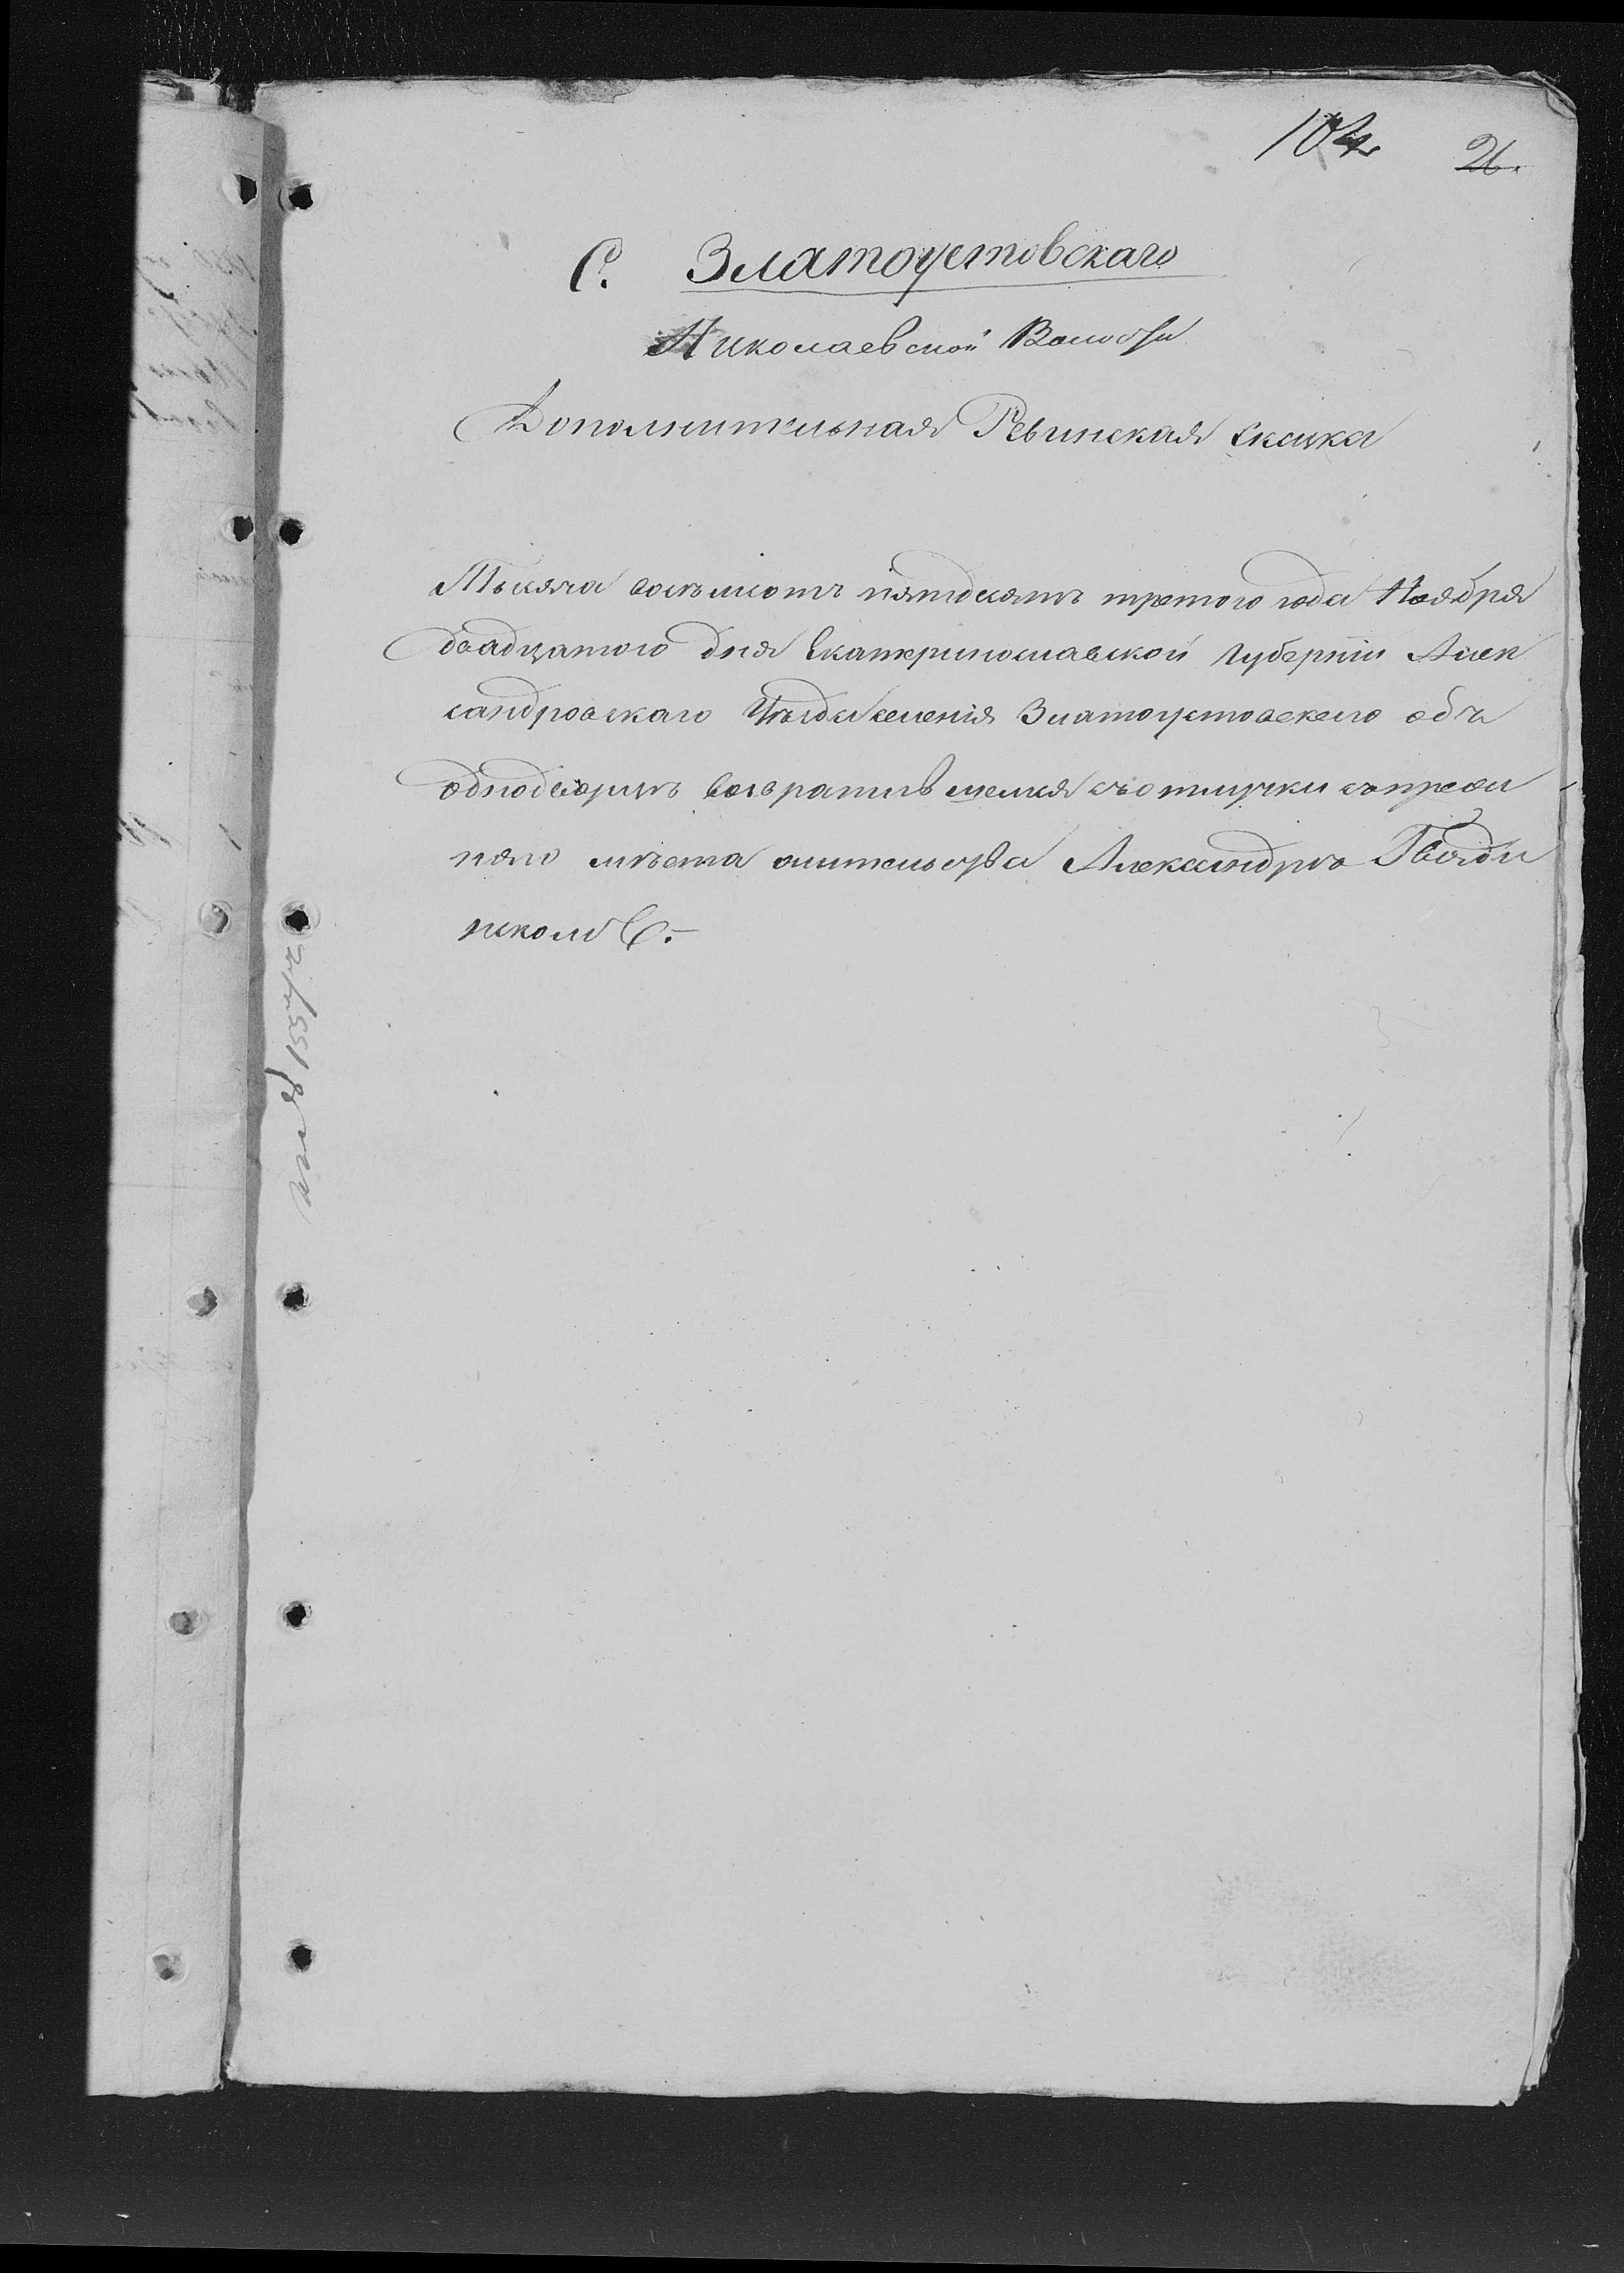 104 26.
С. Златоустовскаго
Николаевской Волости
Дополнительная Ревизская Сказка
Тысяча восемьсотъ пятдесятъ третого года Ноября
двадцатого дня Екатеринославской губерніи Алек
сандровскаго Уѣзда селенія Златоустовскаго объ
однодворцѣ возвратившемся съ отлучки съ преж
няго мѣста жительства Александрѣ Гвозди
ковѣ.